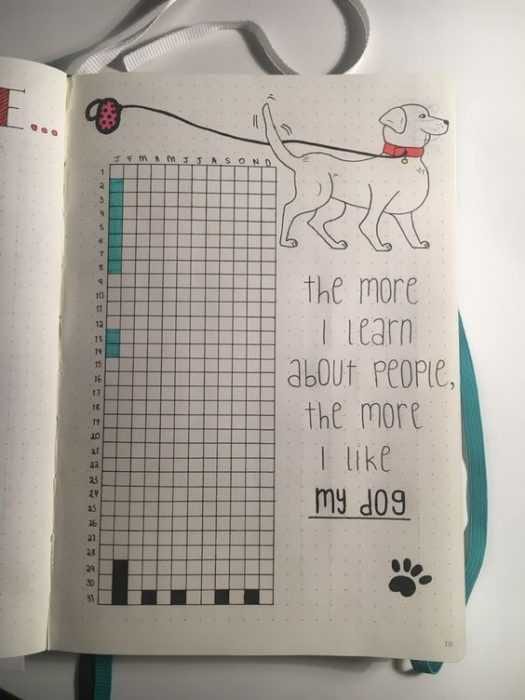 E...
J F M A M J J A S O N D
1
2
3
4
5
6
7
8
9
10
11
12
13
14
15
16
17
18
19
20
21
22
23
24
25
26
27
28
29
30
31
the more
I learn
about people,
the more
I like
my dog